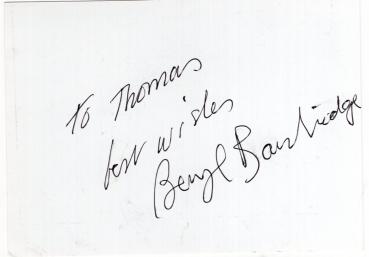 to Thomas
best wishes
Beryl Bainbridge